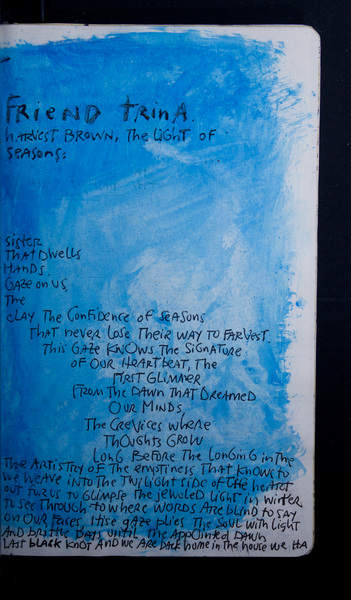 FRIEND TRINA.
HARVEST BROWN, THE LIGHT OF
SEASONS:
SISTER
THAT DWELLS
HANDS
GAZE ON US
THE
CLAY THE CONFIDENCE OF SEASONS
THAT NEVER LOSE THEIR WAY TO FARVEST
THIS GAZE KNOWS THE SIGNATURE
OF OUR HEARTBEAT, THE
FIRST GLIMMER
FROM THE DAWN THAT DREAMED
OUR MINDS,
THE CREVICES WHERE
THOUGHTS GROW
LONG BEFORE THE LONGING IN THE
THE ARTISTRY OF THE EMPTINESS THAT KNOWS TO
WE WEAVE INTO THE TWILIGHT SIDE OF THE HEART
OUT FOR US TO GLIMPSE THE JEWELED LIGHT IN WINTER
TO SEE THROUGH TO WHERE WORDS ARE BLIND TO SAY
ON OUR FACES, GAZE PLIES THE SOUL WITH LIGHT
AND BRITTLE DAYS UNTIL THE APPOINTED DAWN
LAST BLACK KNOT AND WE ARE BACK HOME IN THE HOUSE WE HA